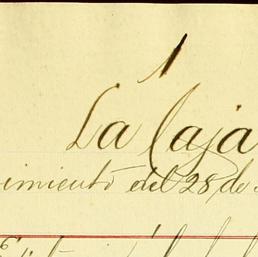 1
La Caja
imiento del 28 de